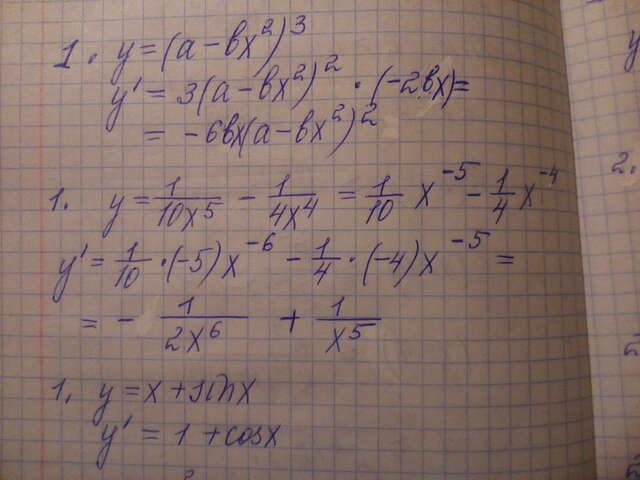 1. y = (a - вx²)³
y' = 3(a - вx²)² · (-2вx) =
= -6вx(a - вx²)²
1. y = 1/10x⁵ - 1/4x⁴ = 1/10 x⁻⁵ - 1/4 x⁻⁴
y' = 1/10 · (-5)x⁻⁶ - 1/4 · (-4)x⁻⁵ =
= - 1/2x⁶ + 1/x⁵
1. y = x + sinx
y' = 1 + cosx
y
2.